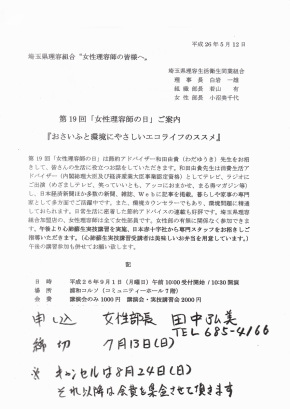 平成26年5月12日
埼玉県理容組合 “女性理容師の皆様へ。
埼玉県理容生活衛生同業組合
理事長 白岩 一雄
組織部長 若山 有
女性部長 小沼美千代
第19回「女性理容師の日」ご案内
『おさいふと環境にやさしいエコライフのススメ』
第19回「女性理容師の日」は節約アドバイザー和田由貴(わだゆうき)先生をお招き
して、皆さんの生活に役立つお話をしていただきます。和田由貴先生は消費生活アド
バイザー(内閣総理大臣及び経済産業大臣事業認定資格)としてテレビ、ラジオに
ご出演(めざましテレビ、笑っていいとも、アッコにおまかせ、まる得マガジン等)
し、日本経済新聞ほか多くの新聞、雑誌、Webなどに記事を掲載。暮らしや家事の専門
家として多方面でご活躍中です。また、環境カウンセラーでもあり、環境問題に精通
しておられます。日常生活に密着した節約アドバイスの連載も好評です。埼玉県理容
組合加盟店の、女性理容師は全て女性部員です。女性部の有無に関係なく参加できま
す。午後より心肺蘇生実技講習を実施、日本赤十字社から専門スタッフをお招きして
行います。(心肺蘇生実技講習受講者は美味しいお弁当を用意しています。)
午後の講習参加も併せてお願いします。
記
日時 平成26年9月1日(月曜日)午前10:00受付開始/10:30開演
場所 浦和コルソ(コミュニティーホール7階)
会費 講演会のみ1000円 講演会・実技講習会2000円
申し込 女性部長 田中弘美
TEL 685-4166
締切 7月13日(日)
※ キャンセルは8月24日(日)
それ以降は会費を集金させて頂きます